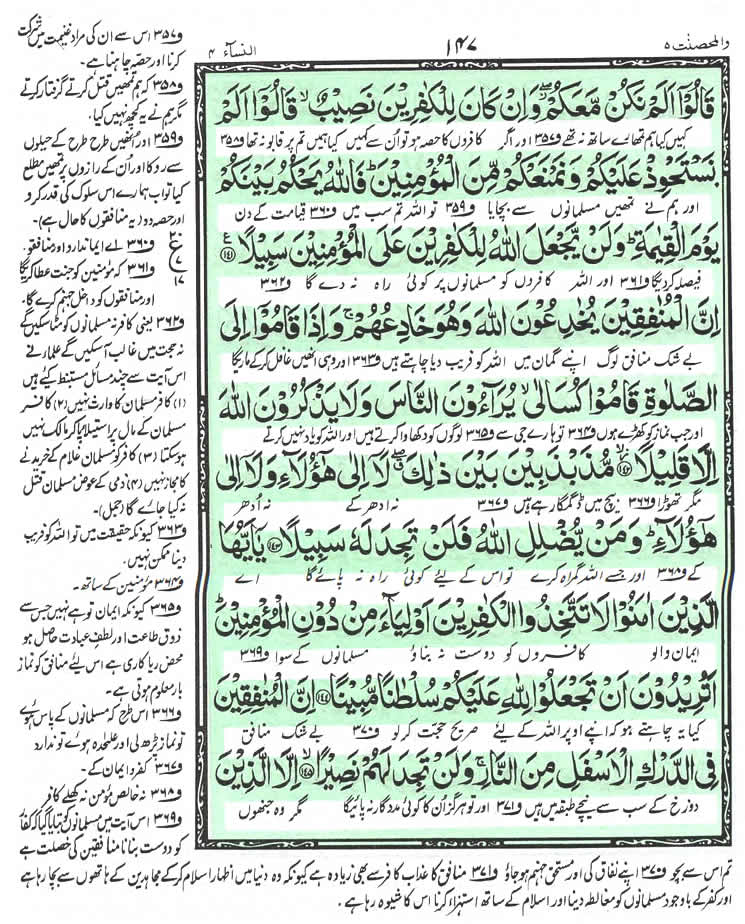 والمحصنٰت ۵
۱۴۷
النسآء ۴
قَالُوْۤا اَلَمْ نَكُنْ مَّعَكُمْ ۖ وَاِنْ كَانَ لِلْكٰفِرِيْنَ نَصِيْبٌ ۙ قَالُوْۤا اَلَمْ
کہیں کیا ہم تمہارے ساتھ نہ تھے ف۳۵۷ اور اگر کافروں کا حصہ ہو تو اُن سے کہیں کیا ہمیں تم پر قابو نہ تھا ف۳۵۸
نَسْتَحْوِذْ عَلَيْكُمْ وَنَمْنَعْكُمْ مِّنَ الْمُؤْمِنِيْنَ ؕ فَاللّٰهُ يَحْكُمُ بَيْنَكُمْ
اور ہم نے تمھیں مسلمانوں سے بچایا ف۳۵۹ تو اللہ تم سب میں ف۳۶۰ قیامت کے دن
يَوْمَ الْقِيٰمَةِ ؕ وَلَنْ يَّجْعَلَ اللّٰهُ لِلْكٰفِرِيْنَ عَلَى الْمُؤْمِنِيْنَ سَبِيْلًا ﴿۱۴۱﴾ ع
فیصلہ کردیگا ف۳۶۱ اور اللہ کافروں کو مسلمانوں پر کوئی راہ نہ دے گا ف۳۶۲
اِنَّ الْمُنٰفِقِيْنَ يُخٰدِعُوْنَ اللّٰهَ وَهُوَ خَادِعُهُمْ ۚ وَاِذَا قَامُوْۤا اِلَى
بے شک منافق لوگ اپنے گمان میں اللہ کو فریب دیا چاہتے ہیں ف۳۶۳ اور وہی انھیں غافل کرکے مارے گا
الصَّلٰوةِ قَامُوْا كُسَالٰى ۙ يُرَآءُوْنَ النَّاسَ وَلَا يَذْكُرُوْنَ اللّٰهَ
اور جب نماز کو کھڑے ہوں ف۳۶۴ تو ہارے جی سے ف۳۶۵ لوگوں کو دکھاوا کرتے ہیں اور اللہ کو یاد نہیں کرتے
اِلَّا قَلِيْلًا ﴿۱۴۲﴾ مُّذَبْذَبِيْنَ بَيْنَ ذٰلِكَ ۖ لَاۤ اِلٰى هٰۤؤُلَآءِ وَلَاۤ اِلٰى
مگر تھوڑا ف۳۶۶ بیچ میں ڈگمگا رہے ہیں ف۳۶۷ نہ ادھر کے نہ اُدھر
هٰۤؤُلَآءِ ؕ وَمَنْ يُّضْلِلِ اللّٰهُ فَلَنْ تَجِدَ لَهٗ سَبِيْلًا ﴿۱۴۳﴾ يٰۤاَيُّهَا
کے ف۳۶۸ اور جسے اللہ گمراہ کرے تو اس کے لیئے کوئی راہ نہ پائے گا اے
الَّذِيْنَ اٰمَنُوْا لَا تَتَّخِذُوا الْكٰفِرِيْنَ اَوْلِيَآءَ مِنْ دُوْنِ الْمُؤْمِنِيْنَ ؕ
ایمان والو کافروں کو دوست نہ بناؤ مسلمانوں کے سوا ف۳۶۹
اَتُرِيْدُوْنَ اَنْ تَجْعَلُوْا لِلّٰهِ عَلَيْكُمْ سُلْطٰنًا مُّبِيْنًا ﴿۱۴۴﴾ اِنَّ الْمُنٰفِقِيْنَ
کیا یہ چاہتے ہو کہ اپنے اوپر اللہ کے لیئے صریح حجت کر لو ف۳۷۰ بے شک منافق
فِى الدَّرْكِ الْاَسْفَلِ مِنَ النَّارِ ۚ وَلَنْ تَجِدَ لَهُمْ نَصِيْرًا ﴿۱۴۵﴾ اِلَّا الَّذِيْنَ
دوزخ کے سب سے نیچے طبقہ میں ہیں ف۳۷۱ اور تو ہرگز اُن کا کوئی مددگار نہ پائیگا مگر وہ جنھوں
ف۳۵۷ اس سے ان کی مراد غنیمت میں شرکت
کرنا اور حصہ چاہنا ہے۔
ف۳۵۸ کہ ہم تمھیں قتل کرتے گرفتار کرتے
مگر ہم نے یہ کچھ نہیں کیا۔
ف۳۵۹ اور انھیں طرح طرح کے حیلوں
سے روکا اور اُن کے رازوں پر تمھیں مطلع
کیا تو اب ہمارے اس سلوک کی قدر کرو
اور حصہ دو (یہ منافقوں کا حال ہے)
ف۳۶۰ اے ایماندارو اور منافقو۔
ف۳۶۱ کہ مؤمنین کو جنت عطا کریگا
اور منافقوں کو داخل جہنم کرے گا۔
ع
۷
۱۷
ف۳۶۲ یعنی کافر نہ مسلمانوں کو مٹا سکیں گے
نہ حجت میں غالب آسکیں گے علماء نے
اس آیت سے چند مسائل مستنبط کیے ہیں
(۱) کافر مسلمان کا وارث نہیں (۲) کافر
مسلمان کے مال پر استیلا پا کر مالک نہیں
ہوسکتا (۳) کافر کو مسلمان غلام کے خریدنے
کا مجاز نہیں (۴) ذمی کے عوض مسلمان قتل
نہ کیا جائے گا (جمل)۔
ف۳۶۳ کیونکہ حقیقت میں تو اللہ کو فریب
دینا ممکن نہیں۔
ف۳۶۴ مؤمنین کے ساتھ۔
ف۳۶۵ کیونکہ ایمان تو ہے نہیں جس سے
ذوق طاعت اور لطف عبادت حاصل ہو
محض ریا کاری ہے اس لیئے منافق کو نماز
بار معلوم ہوتی ہے۔
ف۳۶۶ اس طرح کہ مسلمانوں کے پاس ہوئے
تو نماز پڑھ لی اور علیحدہ ہوئے تو ندارد
ف۳۶۷ کفر و ایمان کے۔
ف۳۶۸ نہ خالص مؤمن نہ کھلے کافر
ف۳۶۹ اس آیت میں مسلمانوں کو بتایا گیا کہ کفار
کو دوست بنانا منافقین کی خصلت ہے
تم اس سے بچو ف۳۷۰ اپنے نفاق کی اور مستحق جہنم ہو جاؤ ف۳۷۱ منافق کا عذاب کافر سے بھی زیادہ ہے کیونکہ وہ دنیا میں اظہار اسلام کرکے مجاہدین کے ہاتھوں سے بچا رہا ہے
اور کفر کے باوجود مسلمانوں کو مغالطہ دینا اور اسلام کے ساتھ استہزاء کرنا اس کا شیوہ رہا ہے۔